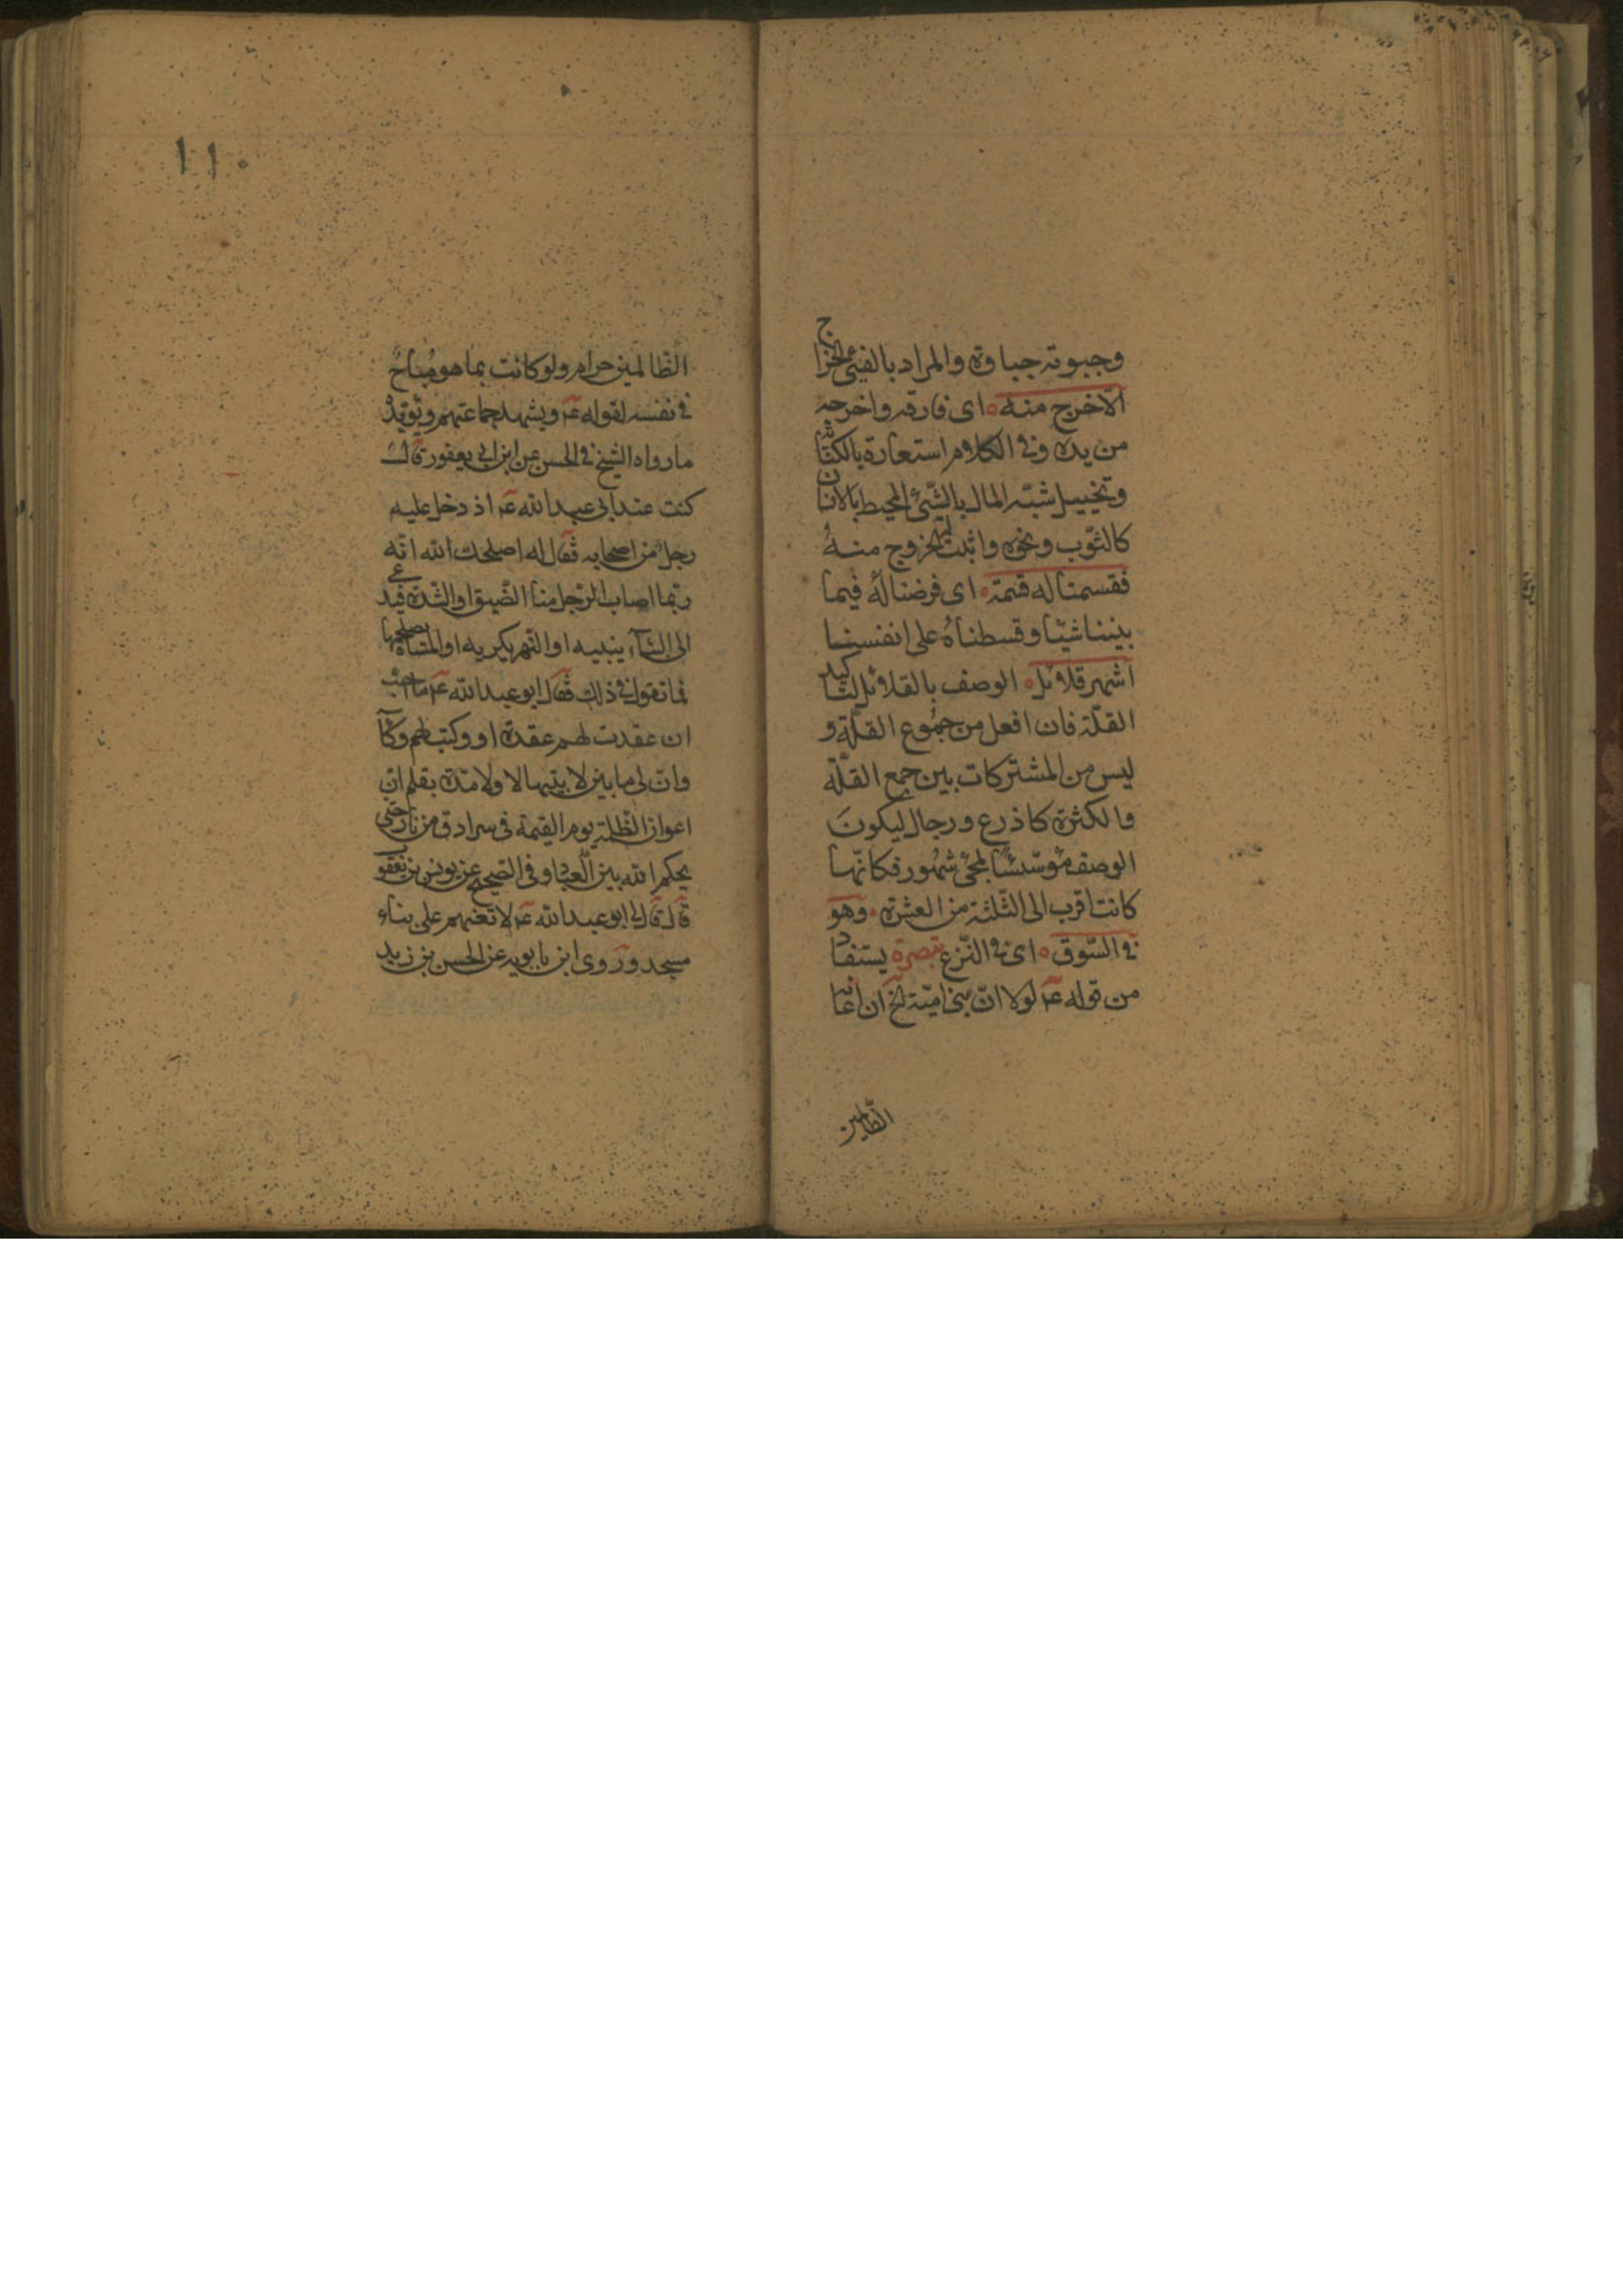 وجبوته جباوة والمراد بالفيئ الخراج
الا خرج منه ه اى فارقه واخرجه
من يده وفى الكلام استعارة بالكنا
وتخييل شبّه المال بالشّئ المحيط بالانسان
كالثّوب ونحوه واثبت له الخروج منهُ
فقسمنا له قسمة ه اى فرضنا لهُ فيما
بيننا شيئا وقسطناهُ على انفسنا
اشهر قلائل ه الوصف بالقلائل لتاكيد
القلّة فان افعل من جمُوع القلّة و
ليس من المشتركات بين جمع القلّة
والكثرة كاذرع ورجال ليكونَ
الوصف مؤسّسًا لمجئ شهُور فكانّها
كانت اقرب الى الثّلثة من العشرة ه وهو
فى السّوق ه اى فى النّزع تبصرة يستفاد
من قوله عم لولا ان بنى اميّة الخ ان اعانة
الظّالمين
١١٠
الظّالمين حرام ولو كانت بما هو مُباحٌ
فى نفسه لقوله عم ويشهد جماعتهم ويؤيّدُ
ما رواه الشيخ فى الحسن عن ابن ابى يعفور قال
كنت عند ابى عبد الله عم اذ دخل عليه
رجلٌ من اصحابه فقال له اصلحك الله انّه
ربّما اصاب الرّجل منا الضّيق او الشّدة فيدعى
الى البنآء يبنيه او النّهر يكريه او المسنّاة يصلحها
فما تقول فى ذلك فقال ابو عبد الله عم ما احبّ
ان عقدت لهم عقدة او وكيت لهم وكآ
وانّ لى ما بين لابتيها لا ولا مدّة بقلم انّ
اعوان الظّلمة يوم القيمة فى سرادق من نار حتى
يحكم الله بين العباد وفى الصّحيح عن يونس بن يعقوب
قال قال لى ابو عبد الله عم لا تعنهم على بناء
مسجد وروى ابن بابويه عن الحسن بن زيد